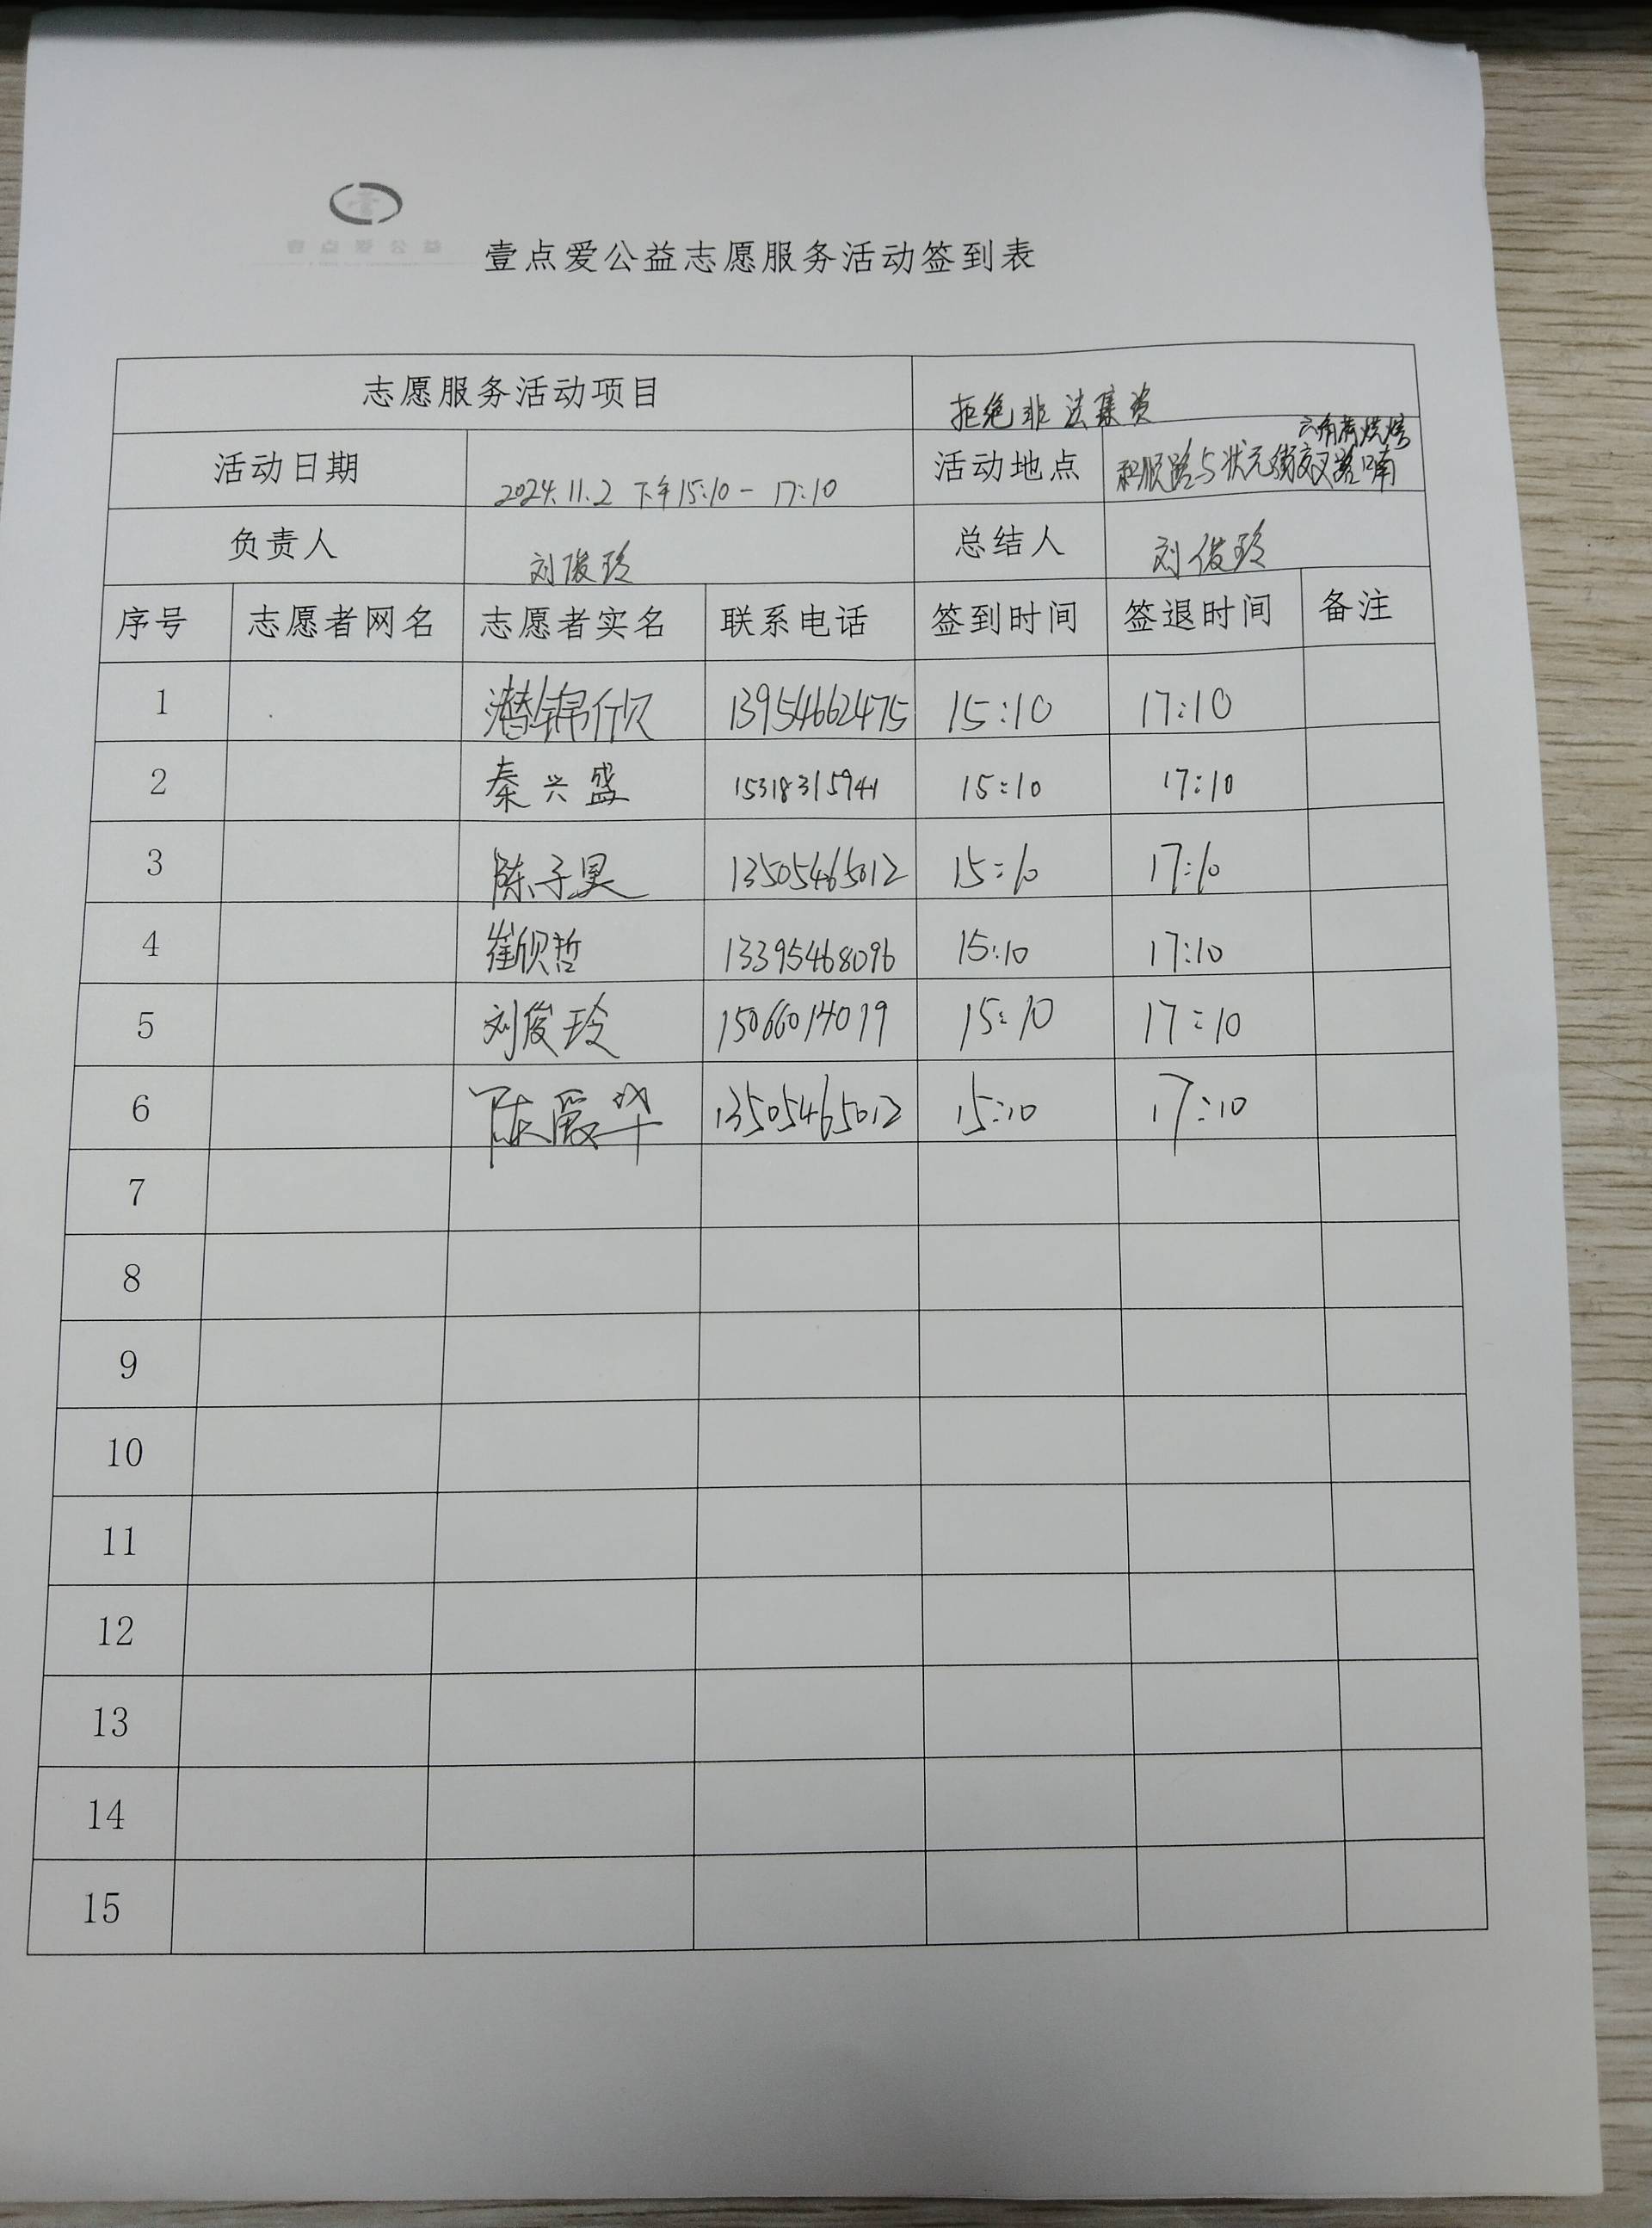 壹点爱公益
壹点爱公益志愿服务活动签到表
志愿服务活动项目 拒绝非法集资
活动日期 2024.11.2 下午15:10-17:10 活动地点 和顺路与状元街交叉路口南
负责人 刘俊玲 总结人 刘俊玲
序号 志愿者网名 志愿者实名 联系电话 签到时间 签退时间 备注
1 潜锦欣 13954662475 15:10 17:10
2 秦兴盛 15318315941 15:10 17:10
3 陈子昊 13505465012 15:10 17:10
4 崔 哲 13395468096 15:10 17:10
5 刘俊玲 15066014019 15:10 17:10
6 陈爱华 13505465012 15:10 17:10
7
8
9
10
11
12
13
14
15